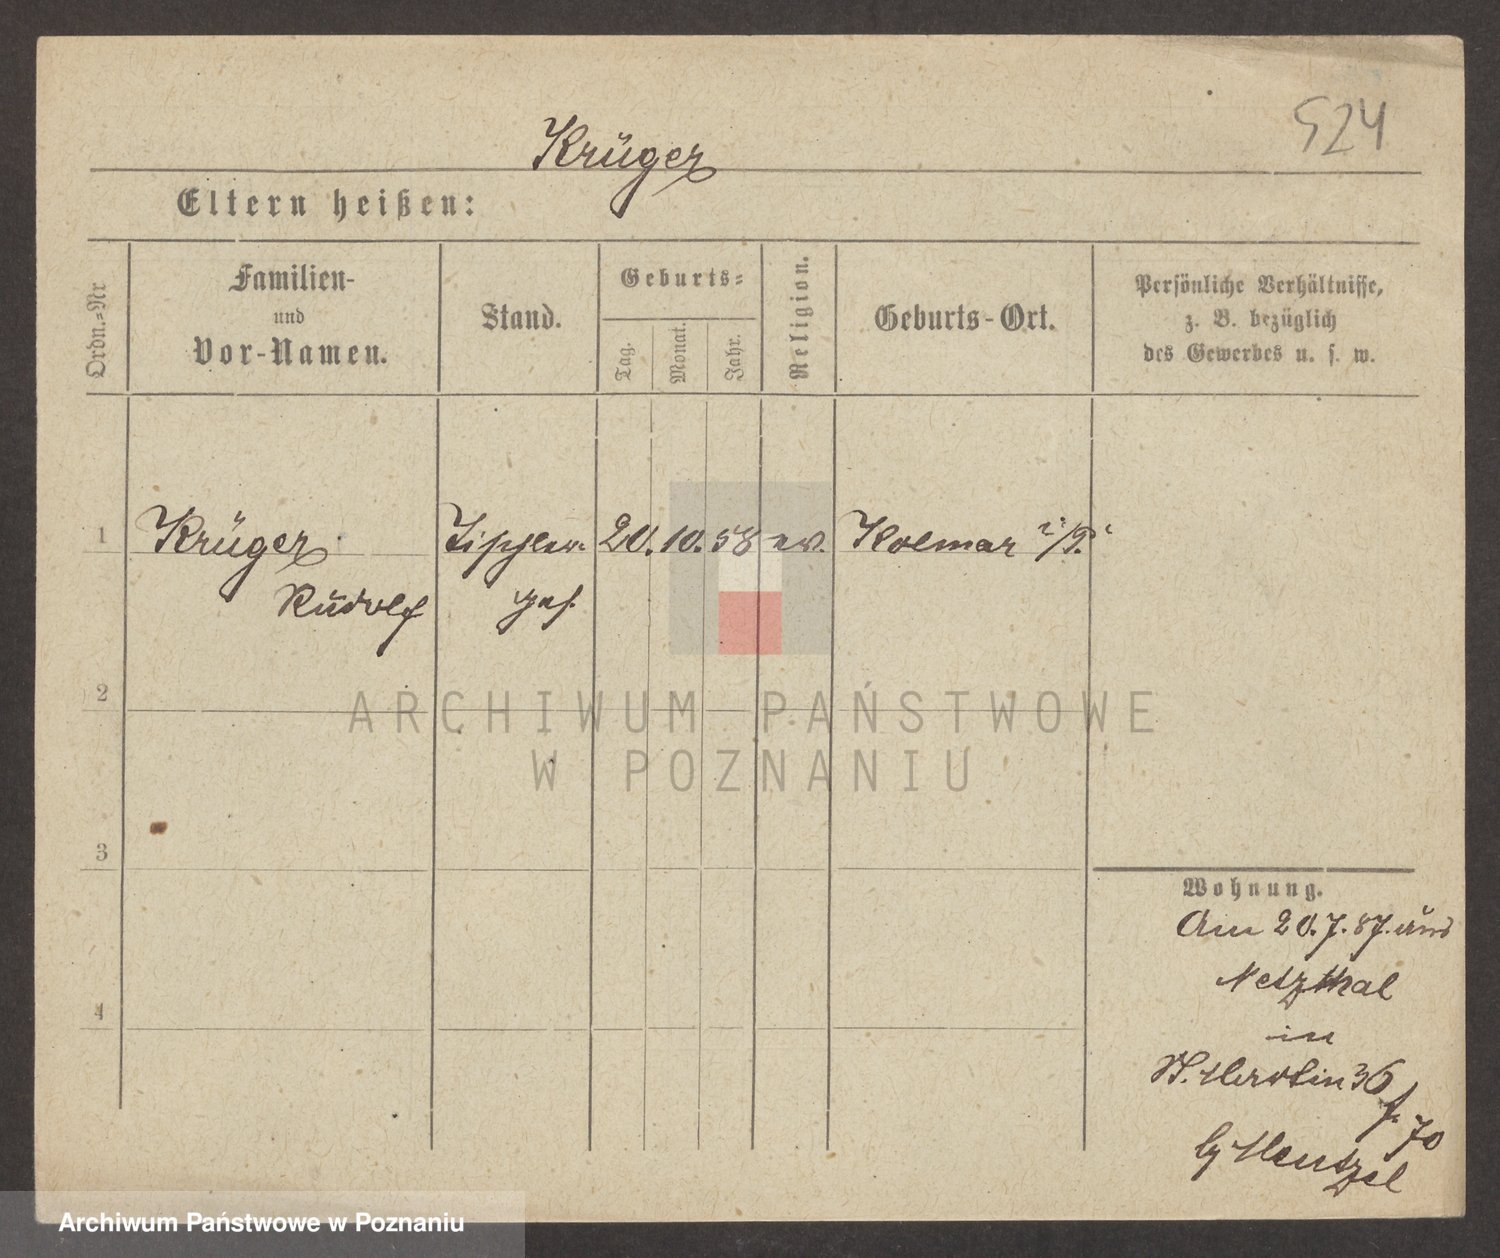 524
Krüger
Eltern heißen:
Ordn.-Nr
Familien-
und
Vor-Namen.
Stand.
Geburts-
Tag.
Monat.
Jahr.
Religion.
Geburts-Ort.
Persönliche Verhältnisse,
z. B. bezüglich
des Gewerbes u. s. w.
1 Krüger Tischler 20. 10. 58 ev. Kolmar i/P.
Rudolf ges.
2
ARCHIWUM PAŃSTWOWE
W POZNANIU
3
Wohnung.
Am 20.7.87. aus
Netzthal
4
in
St. Martin 36
f. 70
by Mentzel
Archiwum Państwowe w Poznaniu